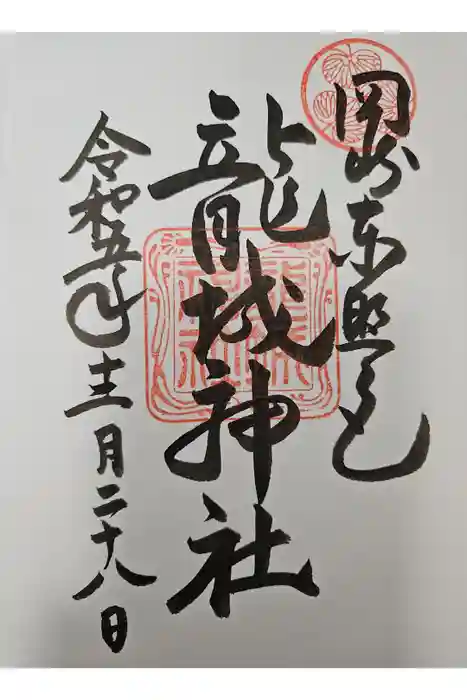 岡崎東照宮
龍城神社
令和五年十二月二十八日